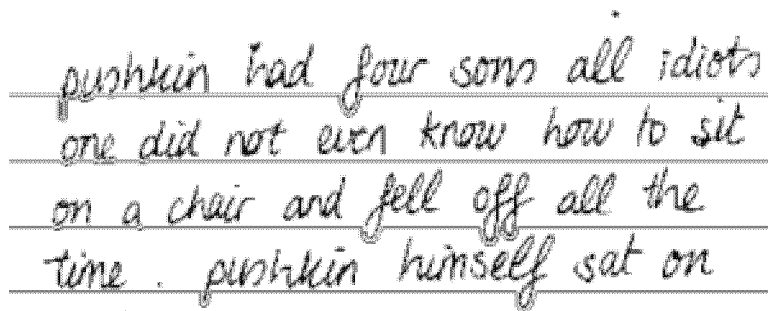 pushkin had four sons all idiots
one did not even know how to sit
on a chair and fell off all the
time. pushkin himself sat on